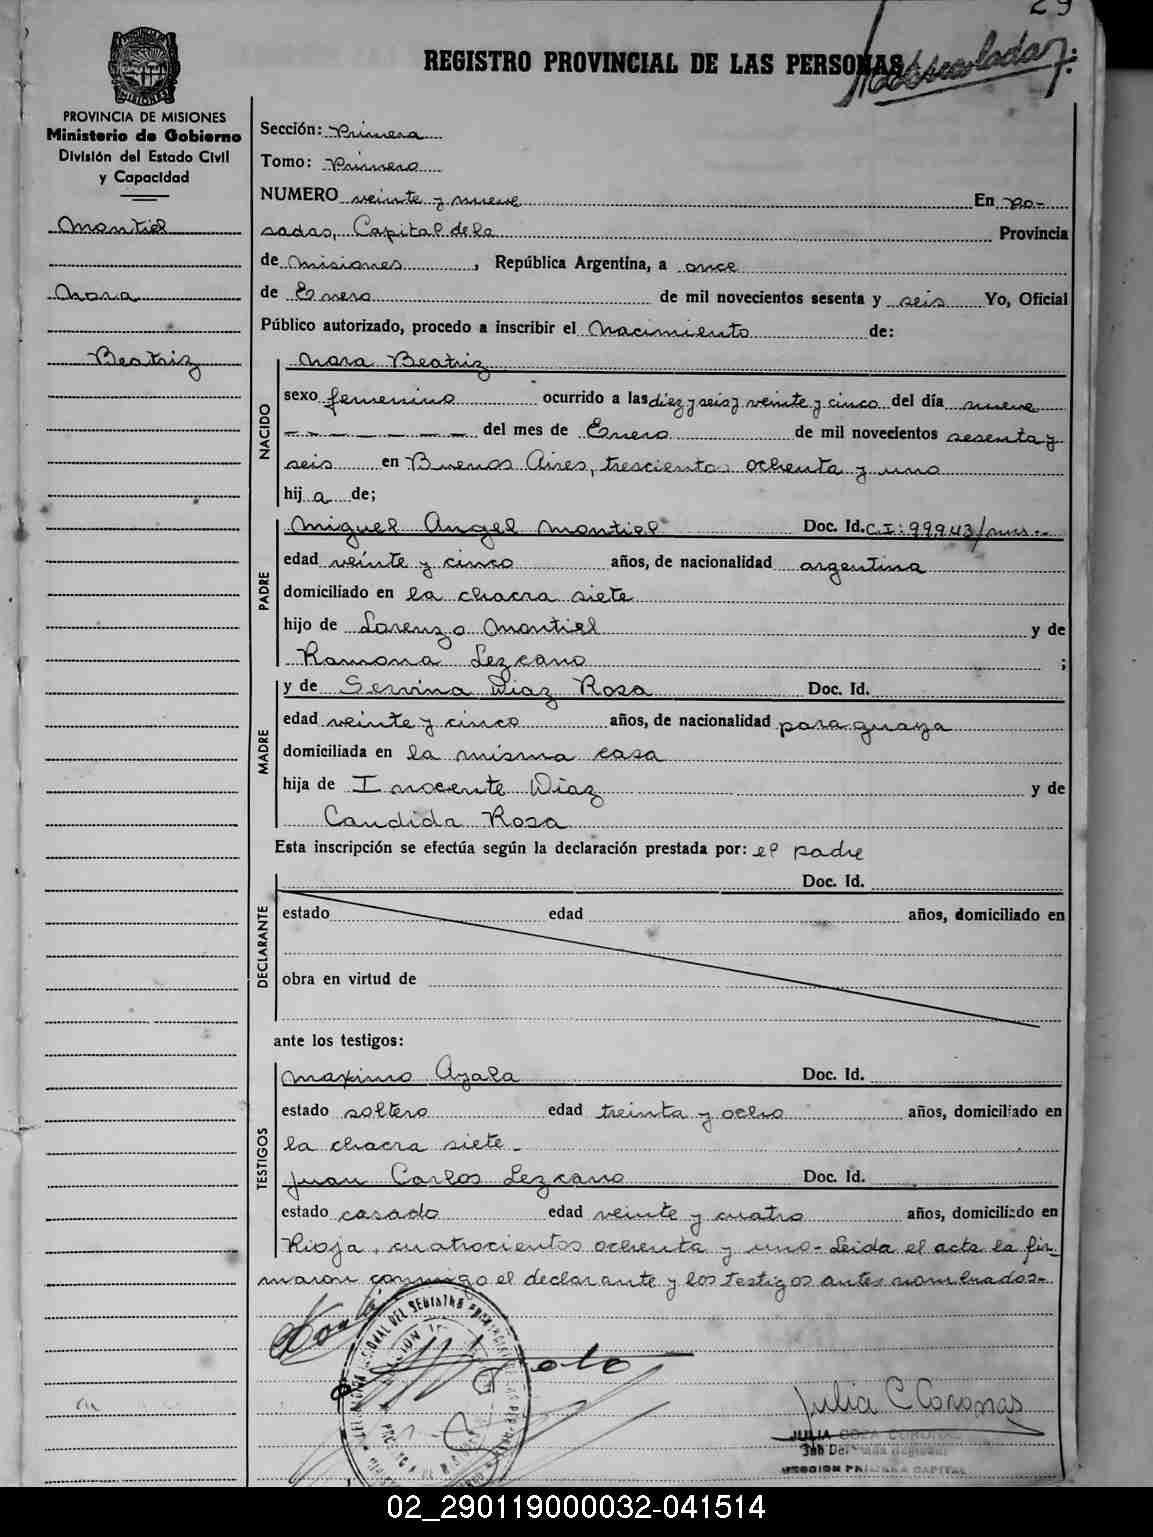 29
REGISTRO PROVINCIAL DE LAS PERSONAS
PROVINCIA DE MISIONES
Ministerio de Gobierno
División del Estado Civil
y Capacidad
Montiel
Nora
Beatriz
Sección: Primera
Tomo: Primero
NUMERO veinte y nueve En Po-
sadas, Capital de la Provincia
de Misiones, República Argentina, a once
de Enero de mil novecientos sesenta y seis Yo, Oficial
Público autorizado, procedo a inscribir el Nacimiento de:
NACIDO
Nora Beatriz
sexo femenino ocurrido a las diez y seis y veinte y cinco del día nueve
del mes de Enero de mil novecientos sesenta y
seis en Buenos Aires, trescientos ochenta y uno
hija de;
PADRE
Miguel Angel Montiel Doc. Id. C.I: 99943/
edad veinte y cinco años, de nacionalidad argentina
domiciliado en la chacra siete
hijo de Lorenzo Montiel y de
Ramona Lezcano ;
MADRE
y de Servina Diaz Rosa Doc. Id.
edad veinte y cinco años, de nacionalidad paraguaya
domiciliada en la misma casa
hija de Inocente Diaz y de
Candida Rosa
Esta inscripción se efectúa según la declaración prestada por: el padre
DECLARANTE
Doc. Id.
estado edad años, domiciliado en
obra en virtud de
ante los testigos:
TESTIGOS
Maximo Ayala Doc. Id.
estado soltero edad treinta y ocho años, domiciliado en
la chacra siete-
Juan Carlos Lezcano Doc. Id.
estado casado edad veinte y cuatro años, domiciliado en
Rioja, cuatrocientos ochenta y uno- Leida el acta la fir-
maron conmigo el declarante y los testigos antes nombrados-
Julia C Coronas
02_290119000032-041514